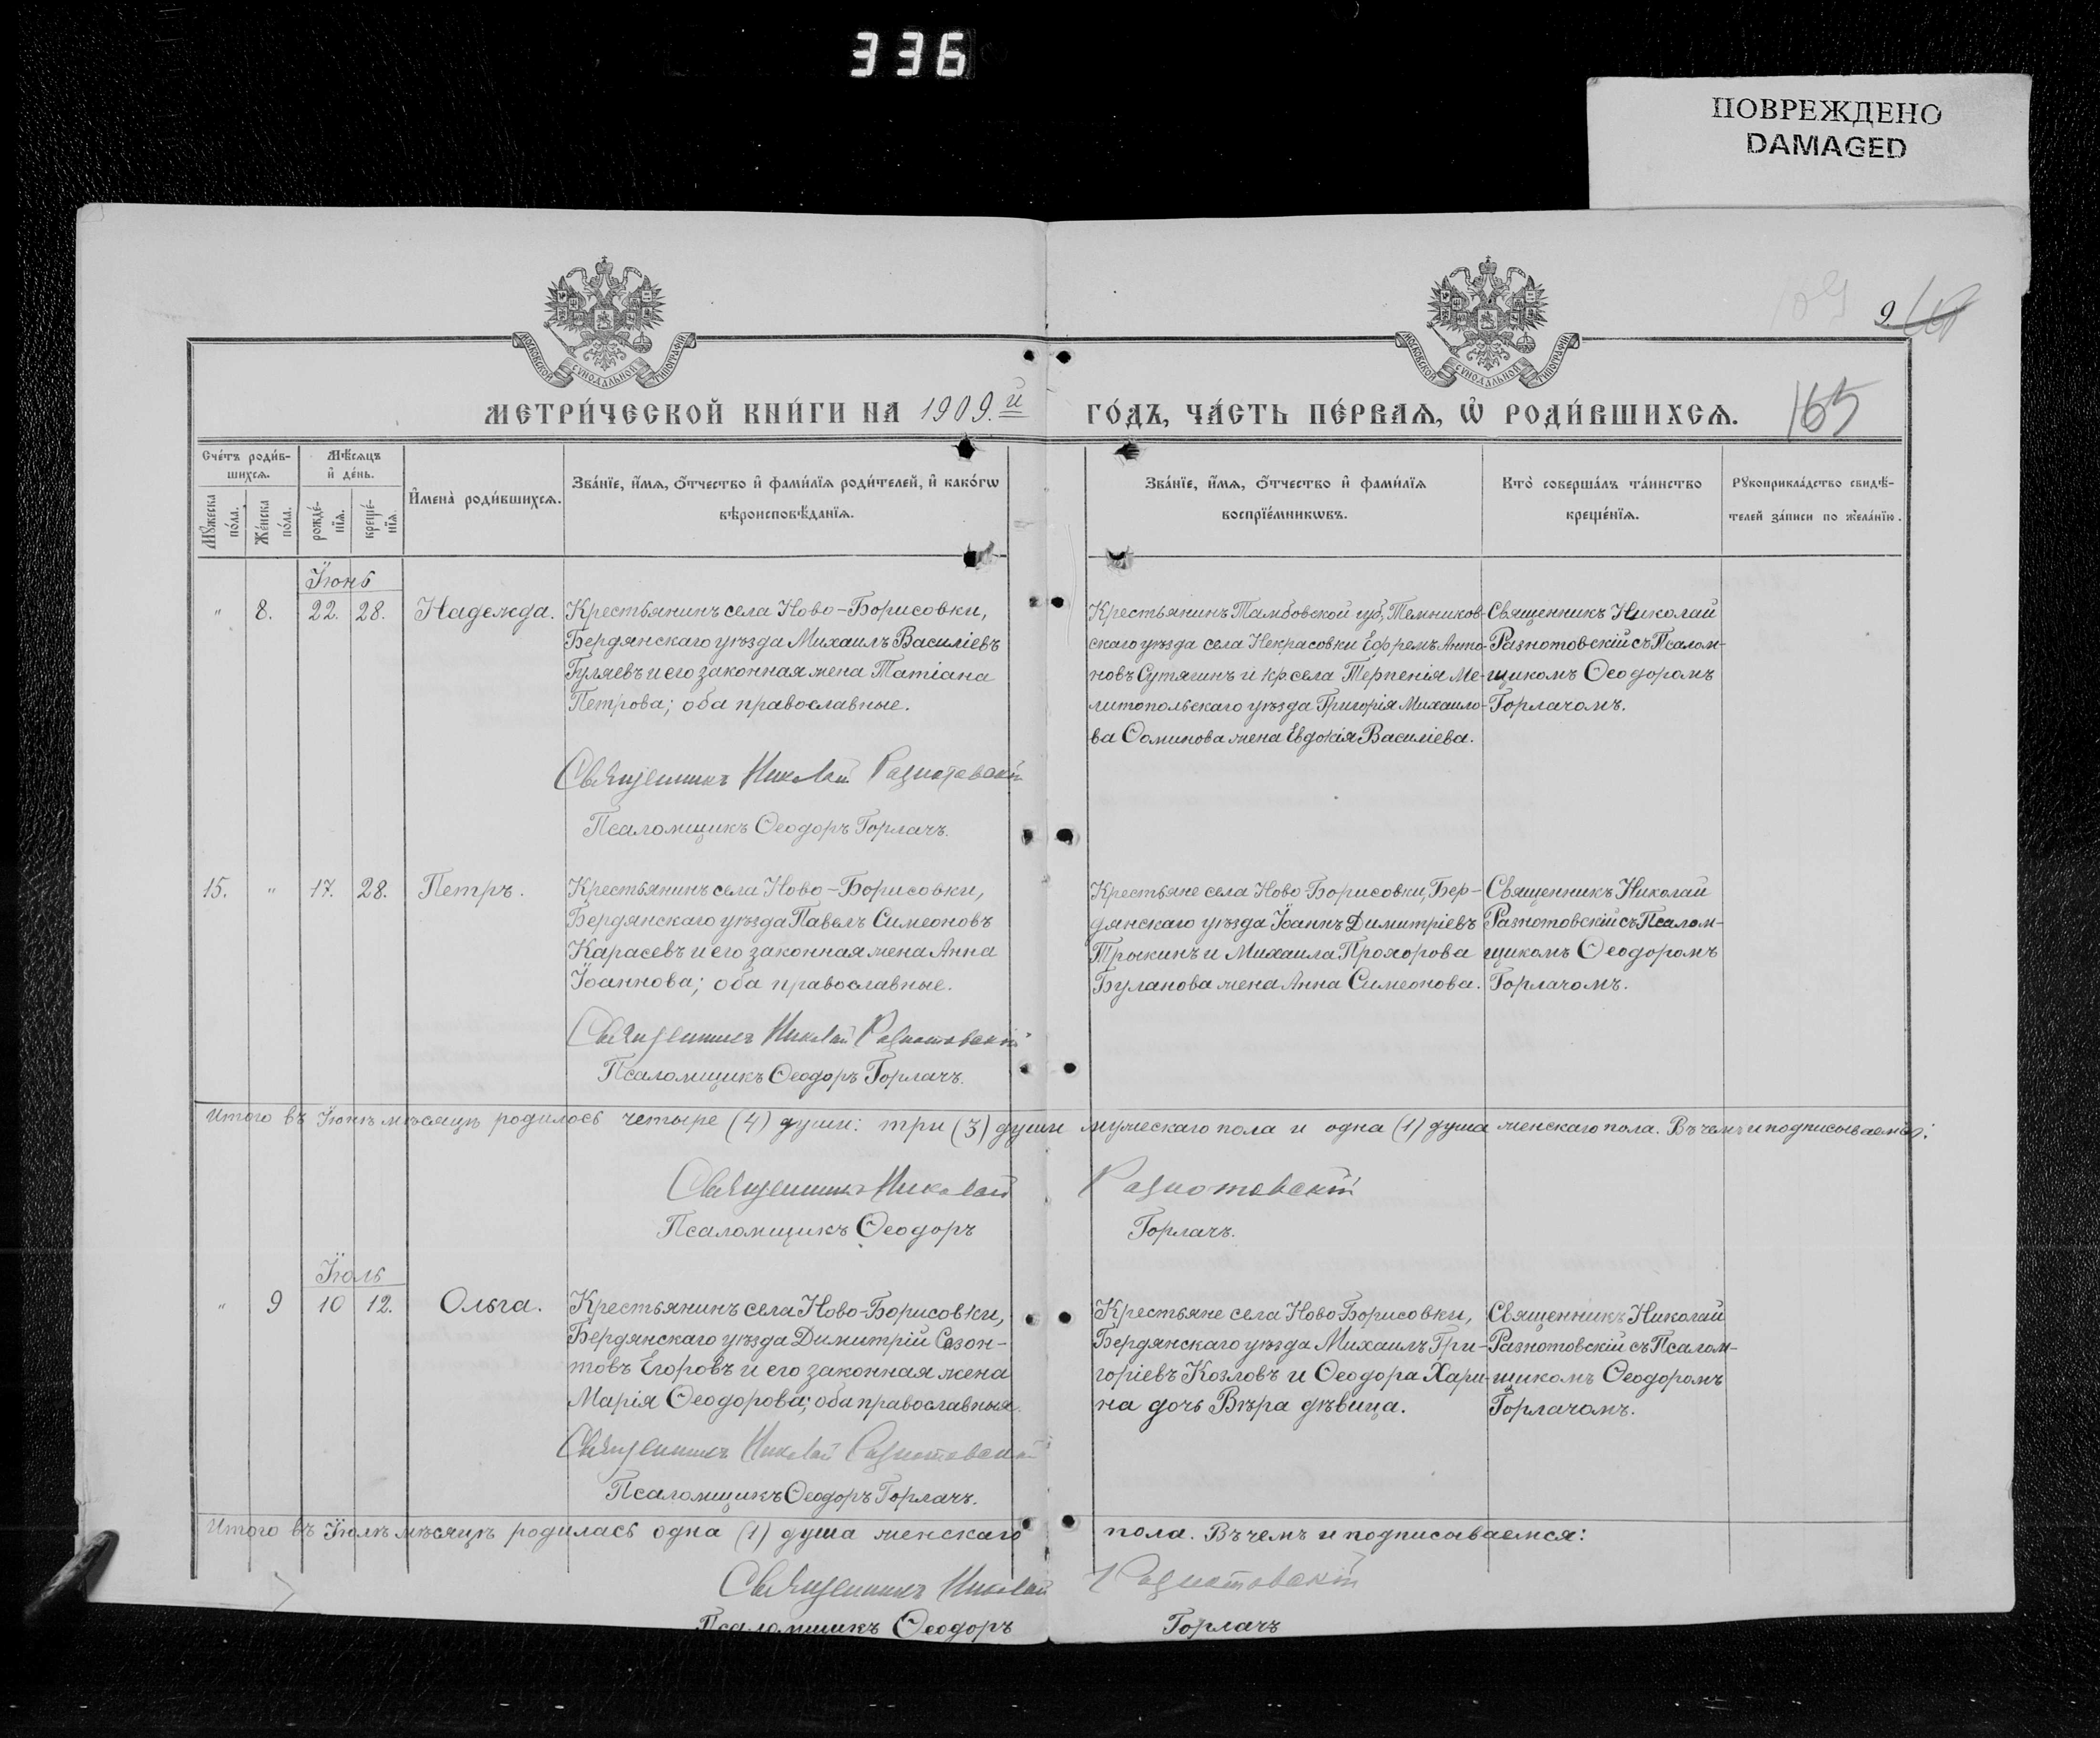 336
ПОВРЕЖДЕНО
DAMAGED
9.
165
МОСКОВСКОЙ СѴНОДАЛЬНОЙ ТИПОГРАФІИ
МОСКОВСКОЙ СѴНОДАЛЬНОЙ ТИПОГРАФІИ
МЕТРИ́ЧЕСКОЙ КНИ́ГИ НА 1909.й ГО́ДЪ, ЧА́СТЬ ПЕ́РВАѦ, Ѡ҆ РОДИ́ВШИХСѦ.
Сче́тъ роди́в-
шихсѧ.
Мꙋ́жеска
по́ла.
Же́нска
по́ла.
Мѣ́сѧцъ
и҆ де́нь.
рожде́-
нїѧ.
креще́-
нїѧ.
И҆мена̀ роди́вшихсѧ.
Зва́нїе, и҆́мѧ, ѻ҆́тчество и҆ фами́лїѧ роди́телей, и҆ како́гѡ
вѣроисповѣ́данїѧ.
Зва́нїе, и҆́мѧ, ѻ҆́тчество и҆ фами́лїѧ
воспрїе́мникѡвъ.
Кто̀ соверша́лъ та́инство
креще́нїѧ.
Рꙋкоприкла́дство свидѣ́-
телей за́писи по жела́нїю.
Іюнь
" 8. 22. 28. Надежда.
Крестьянинъ села Ново-Борисовки,
Бердянскаго уѣзда Михаилъ Василіевъ
Гуляевъ и его законная жена Татіана
Петрова; оба православные.
Священникъ Николай Разнотовскій
Псаломщикъ Ѳеодоръ Горлачъ.
Крестьянинъ Тамбовской губ., Темников-
скаго уѣзда села Некрасовки Ефремъ Анто-
новъ Сутягинъ и кр. села Терпенія Ме-
литопольскаго уѣзда Григорія Михаило-
ва Ѳоминова жена Евдокія Василіева.
Священникъ Николай
Разнотовскій съ Псалом-
щикомъ Ѳеодоромъ
Горлачомъ.
15. " 17. 28. Петръ.
Крестьянинъ села Ново-Борисовки,
Бердянскаго уѣзда Павелъ Симеоновъ
Карасевъ и его законная жена Анна
Іоаннова; оба православные.
Священникъ Николай Разнотовскій
Псаломщикъ Ѳеодоръ Горлачъ.
Крестьяне села Ново-Борисовки, Бер-
дянскаго уѣзда Іоаннъ Димитріевъ
Трыкинъ и Михаила Прохорова
Буланова жена Анна Симеонова.
Священникъ Николай
Разнотовскій съ Псалом-
щикомъ Ѳеодоромъ
Горлачомъ.
Итого въ Іюнѣ мѣсяцѣ родилось четыре (4) души: три (3) души мужескаго пола и одна (1) душа женскаго пола. Въ чемъ и подписываемся:
Священникъ Николай Разнотовскій
Псаломщикъ Ѳеодоръ Горлачъ.
Іюль
" 9 10 12. Ольга.
Крестьянинъ села Ново-Борисовки,
Бердянскаго уѣзда Димитрій Созон-
товъ Егоровъ и его законная жена
Марія Ѳеодорова; оба православныя.
Священникъ Николай Разнотовскій
Псаломщикъ Ѳеодоръ Горлачъ.
Крестьяне села Ново-Борисовки,
Бердянскаго уѣзда Михаилъ Гри-
горіевъ Козловъ и Ѳеодора Хари-
на дочь Вѣра дѣвица.
Священникъ Николай
Разнотовскій съ Псалом-
щикомъ Ѳеодоромъ
Горлачомъ.
Итого въ Іюлѣ мѣсяцѣ родилась одна (1) душа женскаго пола. Въ чемъ и подписываемся:
Священникъ Николай Разнотовскій
Псаломщикъ Ѳеодоръ Горлачъ